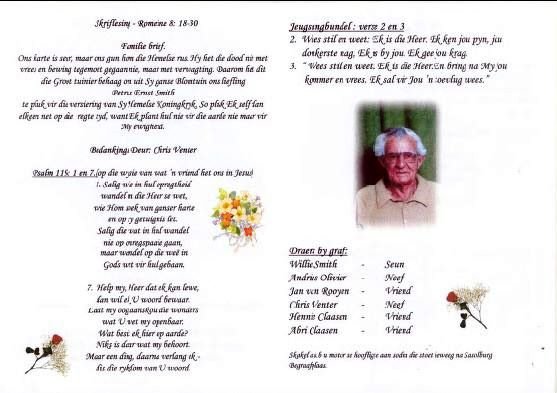 Skriflesing - Romeine 8: 18-30
Familie brief.
Ons harte is seer, maar ons gun hom die Hemelse rus. Hy het die dood nie met
vrees en bewing tegemoet gegaan nie, maar met verwagting. Daarom het dit
die Groot tuinier behaag om uit Sy ganse Blomtuin ons liefling
Petrus Ernst Smith
te pluk vir die versiering van Sy Hemelse Koningkryk. So pluk Ek self dan
elkeen net op die regte tyd, want Ek plant hul nie vir die aarde nie maar vir
My ewigheid.
Bedanking: Deur: Chris Venter
Psalm 119: 1 en 7. (op die wysie van wat 'n vriend het ons in Jesus)
1. Salig wie in hul opregtheid
wandel in die Heer se wet,
wie Hom soek van ganser harte
en op sy getuignis let.
Salig die wat in hul wandel
nie op onregspaaie gaan,
maar wandel op die weë in
Gods wet vir hulgebaan.
7. Help my, Heer dat ek kan lewe,
dan wil ek U woord bewaar.
Laat my oog aanskou die wonders
wat U wet my openbaar.
Wat besit ek hier op aarde?
Niks is daar wat my behoort.
Maar een ding, daarna verlang ek -
dis die rykdom van U woord.
Jeugsingbundel : verse 2 en 3
2. Wees stil en weet: Ek is die Heer. Ek ken jou pyn, jou
donkerste nag, Ek is by jou. Ek gee jou krag.
3. " Wees stil en weet. Ek is die Heer. En bring na My jou
kommer en vrees. Ek sal vir Jou 'n toevlug wees."
Draers by graf:
Willie Smith - Seun
Andries Olivier - Neef
Jan van Rooyen - Vriend
Chris Venter - Neef
Hennie Claasen - Vriend
Abri Claasen - Vriend
Skakel asb u motor se hoofligte aan sodra die stoet beweeg na Sasolburg
Begraafplaas.